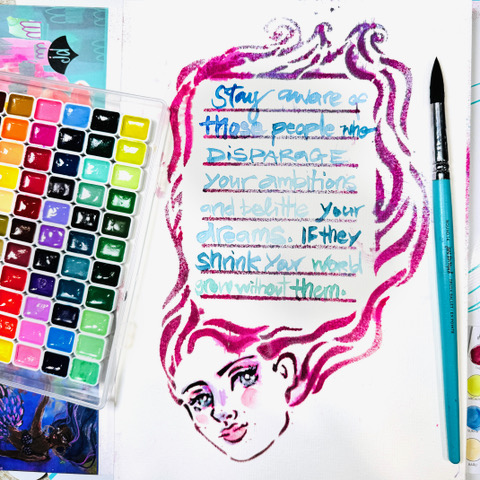 Stay aware of
those people who
DISPARAGE
your ambitions
and belittle your
dreams. IF they
shrink your world
grow without them.
jd